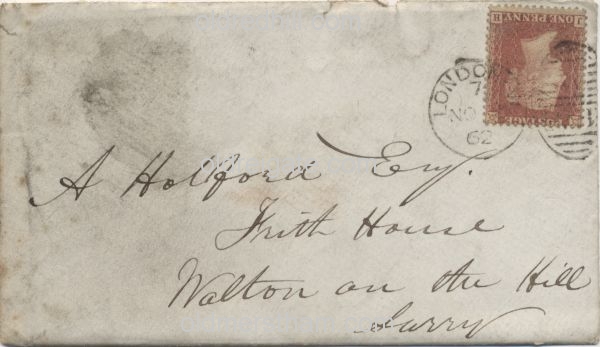 ONE PENNY
POSTAGE
LONDON
7
NO
62
A Holford Esq.
Frith House
Walton on the Hill
Surry